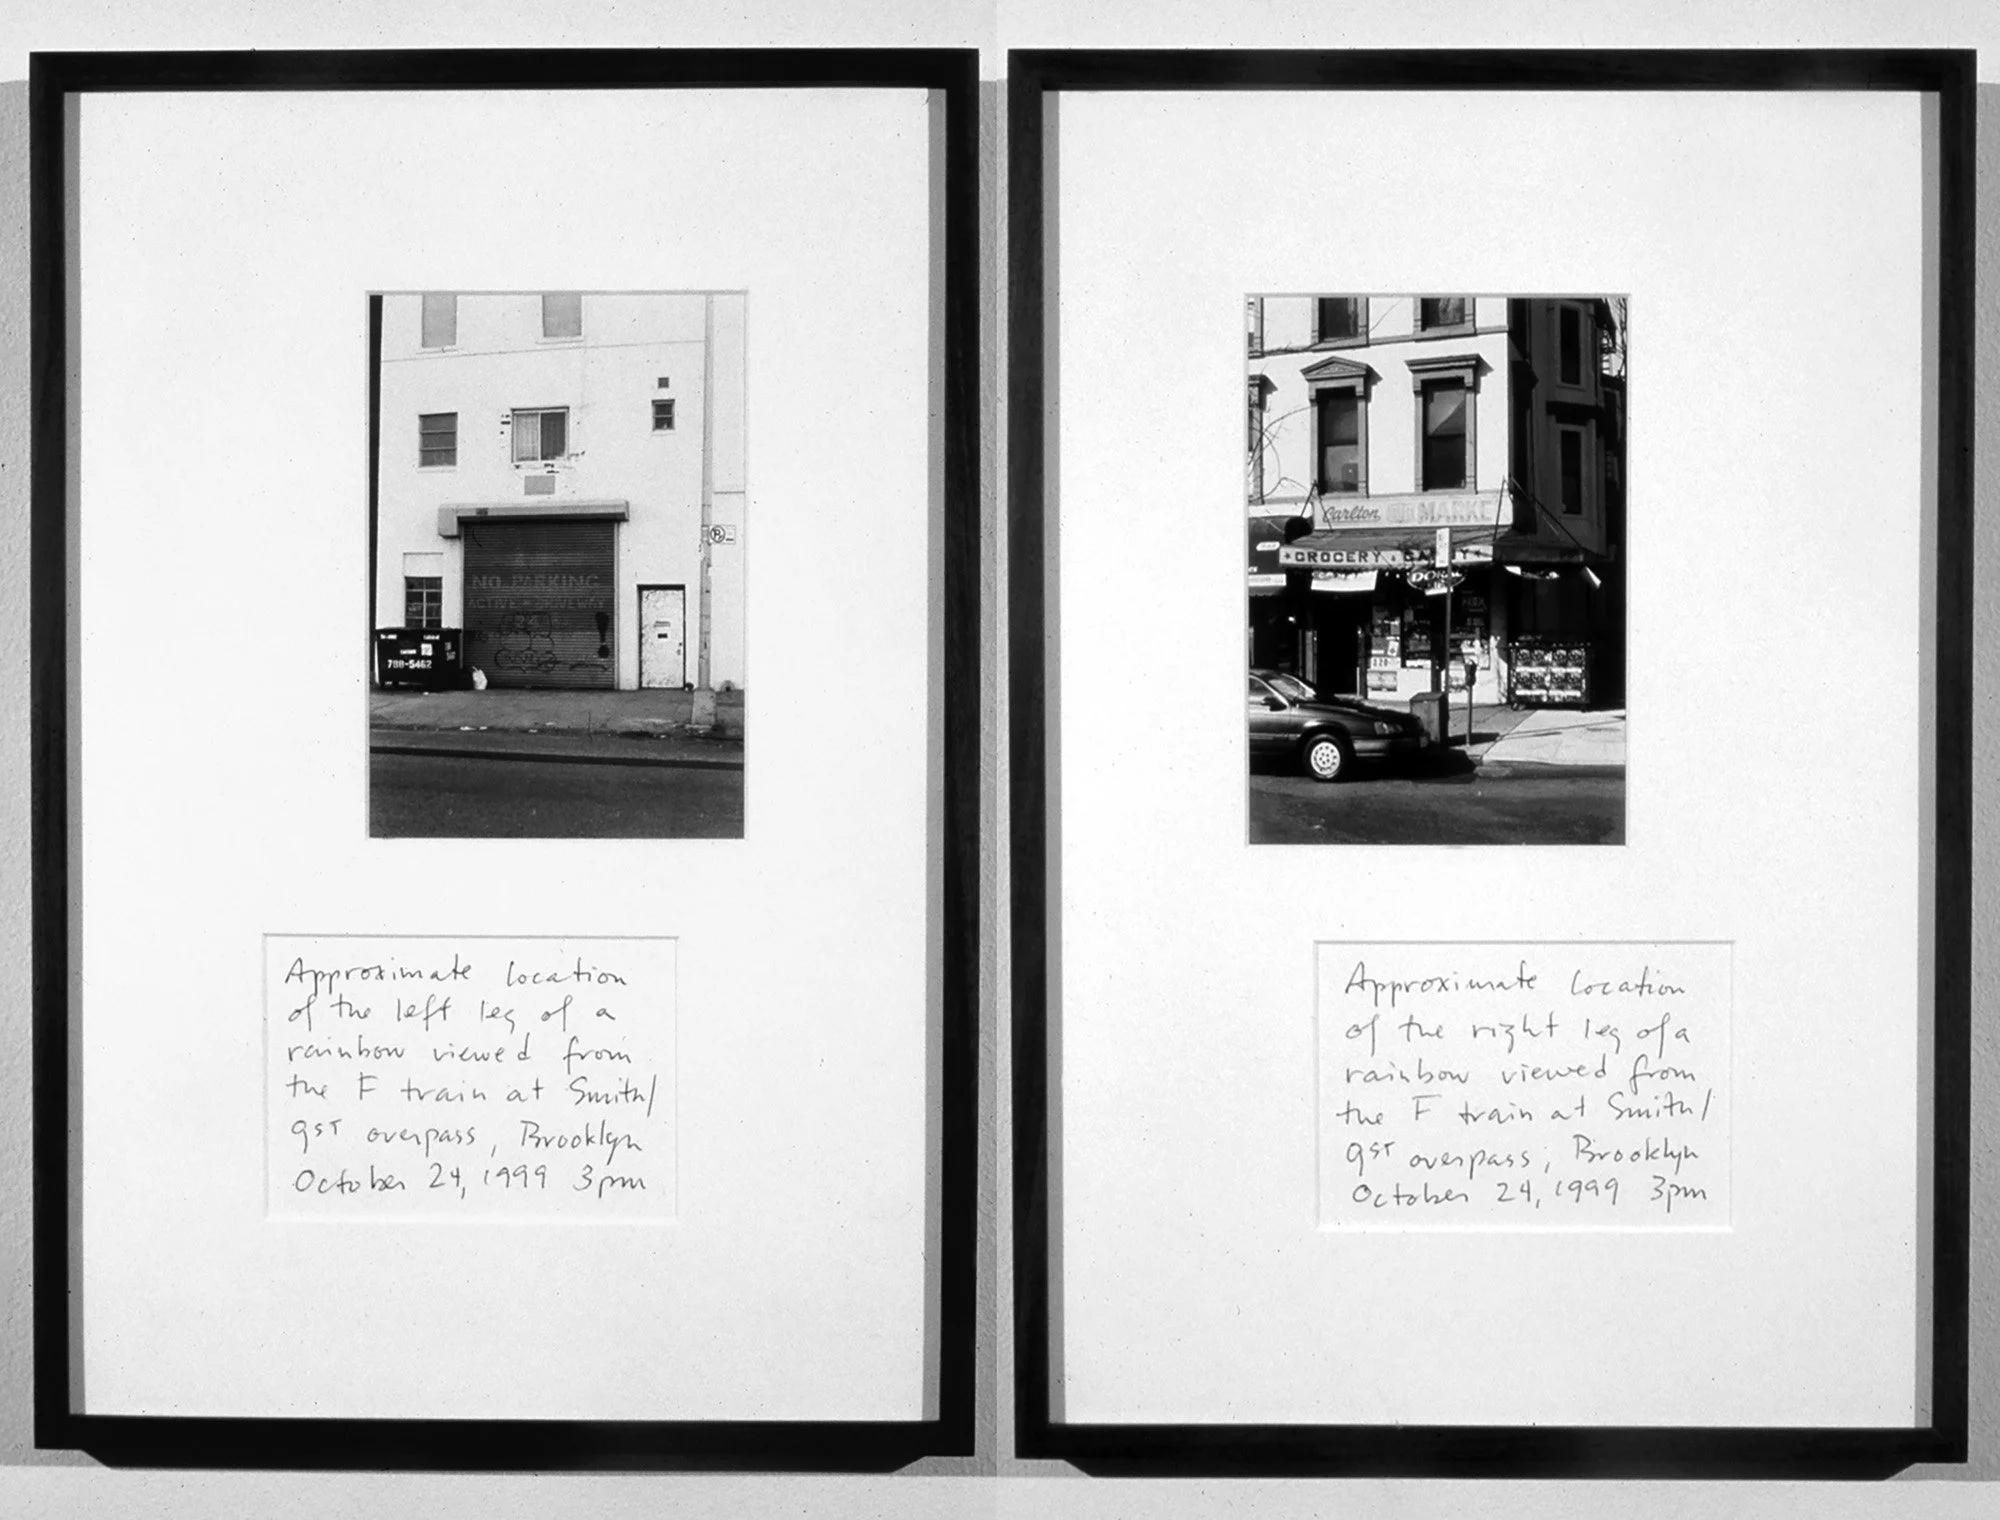 NO PARKING
788-5462
Approximate location
of the left leg of a
rainbow viewed from
the F train at Smith/
9ST overpass, Brooklyn
October 24, 1999 3pm
Carlton MARKE
GROCERY
Approximate location
of the right leg of a
rainbow viewed from
the F train at Smith/
9ST overpass, Brooklyn
October 24, 1999 3pm